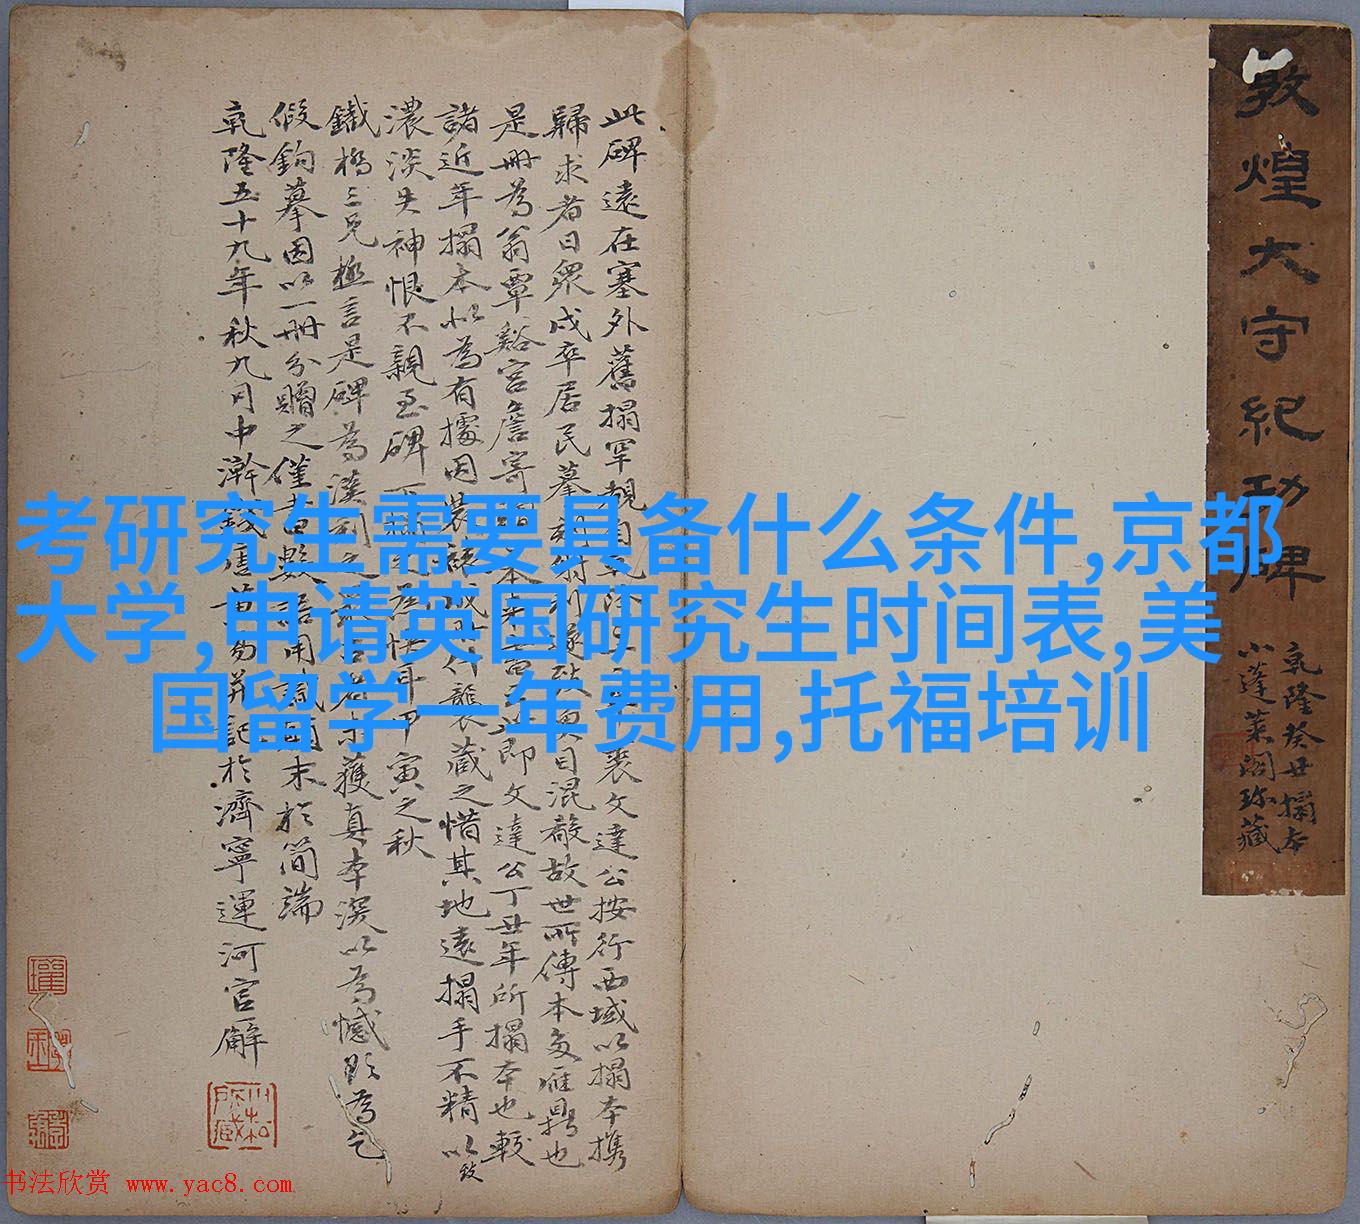 敦煌太守紀功碑
乾隆癸丑搨本
小蓬萊閣珍藏
此碑遠在塞外舊搨罕覯自乾隆
裘文達公按行西域以搨本攜
歸求者日眾戍卒居民摹刻
目混殽故世所傳本多雁鼎也
是冊為翁覃谿宮詹寄
即文達公丁丑年所搨本也較
諸近年搨本似為有據因裝
襲藏之惜其地遠搨手不精以致
濃淡失神恨不親至碑下
甲寅之秋
鐵橋三兄極言是碑為漢刻之
獲真本深以為憾欣為乞
假鉤摹因以一冊分贈之僅
數語用誌顛末於簡端
乾隆五十九年秋九月中澣錢唐黃易并記於濟寧運河官廨
考研究生需要具备什么条件,京都
大学,申请英国研究生时间表,美
国留学一年费用,托福培训
书法欣赏 www.yac8.com